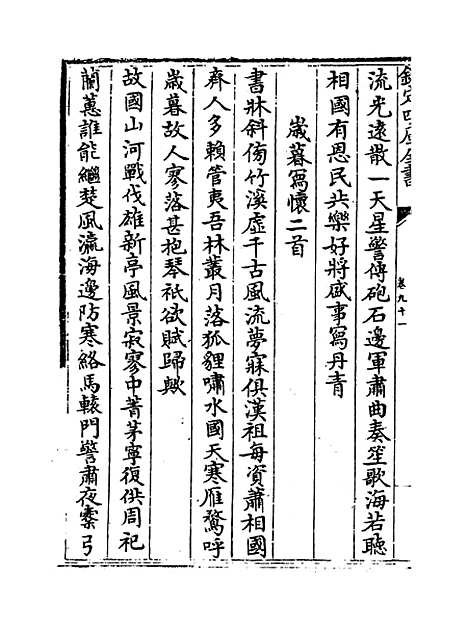 欽定四庫全書
卷九十一
流光遠散一天星警傳砲石邊軍肅曲奏笙歌海若聽
相國有恩民共樂好將盛事寫丹青
歲暮寫懷二首
書牀斜傍竹溪虛千古風流夢寐俱漢祖每資蕭相國
齊人多賴管夷吾林叢月落狐貍嘯水國天寒雁鶩呼
歲暮故人寥落甚抱琴祇欲賦歸歟
故國山河戰伐雄新亭風景寂寥中菁茅寧復供周祀
蘭蕙誰能繼楚風瀛海邊防寒絡馬轅門警肅夜櫜弓